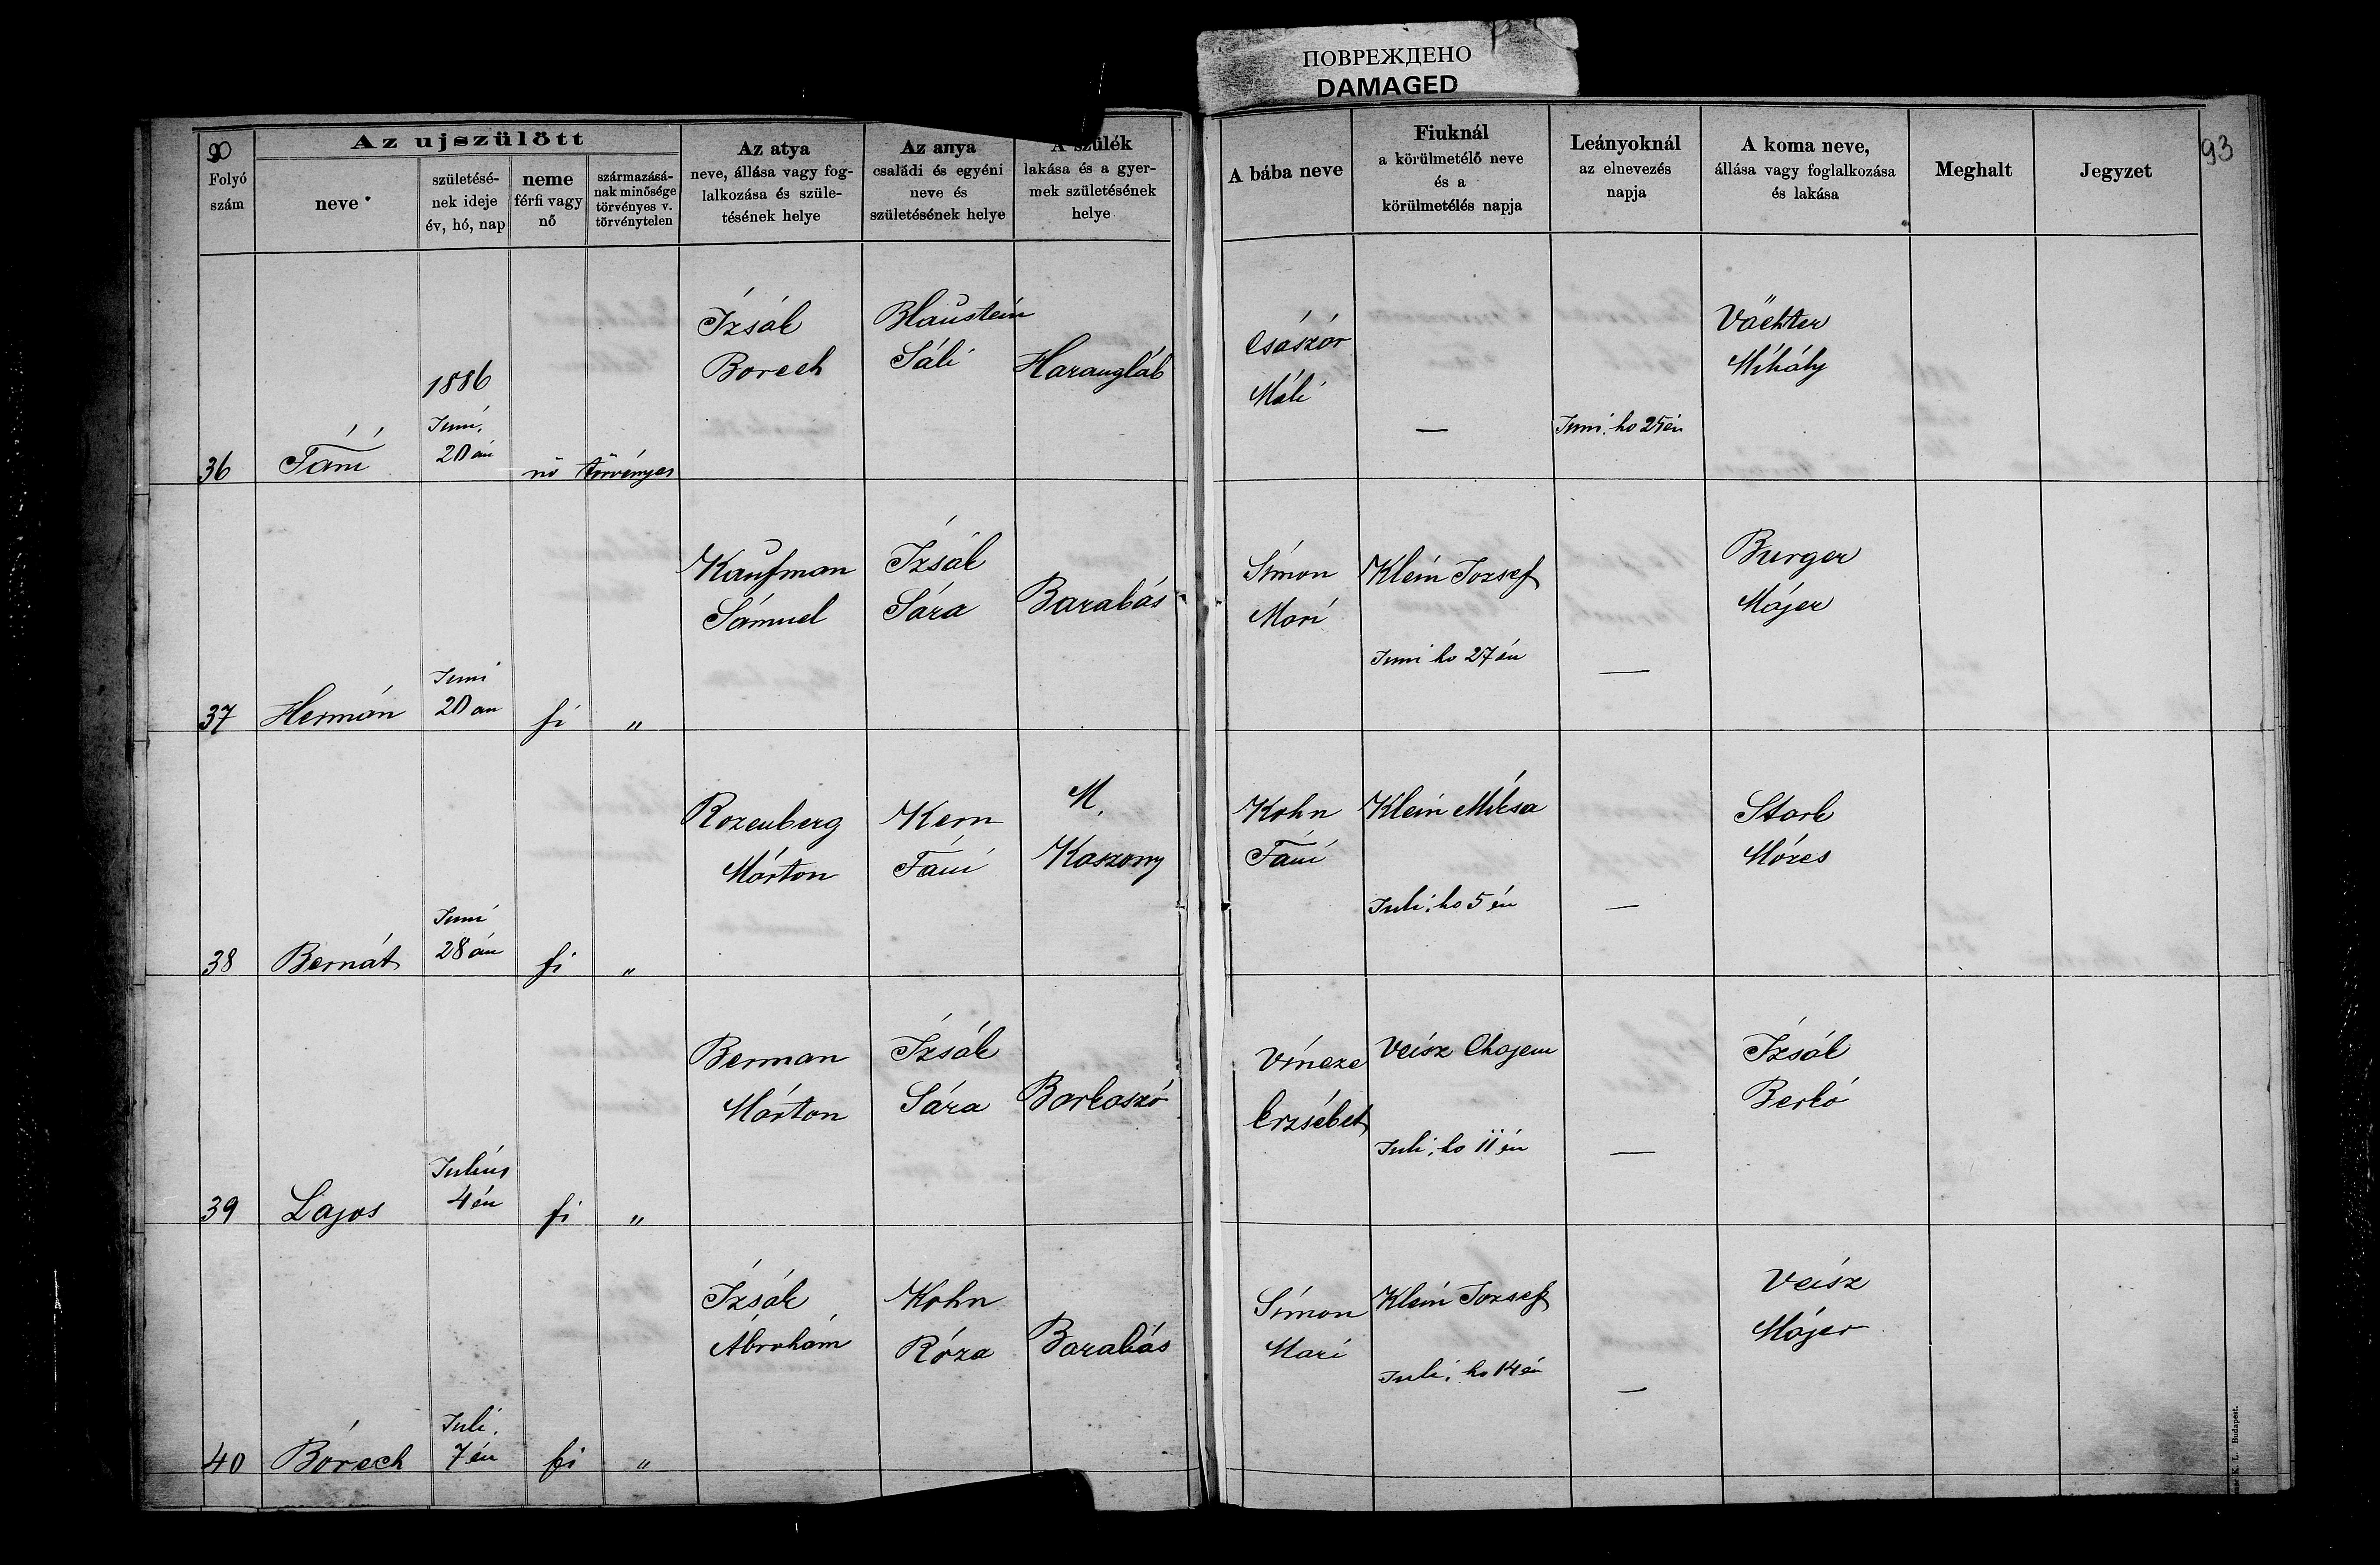 ПОВРЕЖДЕНО
DAMAGED
90
93
Az ujszülött
Folyó
szám
neve
születésé-
nek ideje
év, hó, nap
neme
férfi vagy
nő
származásá-
nak minősége
törvényes v.
törvénytelen
Az atya
neve, állása vagy fog-
lalkozása és szüle-
tésének helye
Az anya
családi és egyéni
neve és
születésének helye
A szülék
lakása és a gyer-
mek születésének
helye
A bába neve
Fiuknál
a körülmetélő neve
és a
körülmetélés napja
Leányoknál
az elnevezés
napja
A koma neve,
állása vagy foglalkozása
és lakása
Meghalt
Jegyzet
36
Fáni
1886
Juni.
20 án
nő
törvényes
Izsák
Borech
Blaustein
Sáli
Harangláb
Császár
Máli
—
Juni. ho 25 én
Vächter
Mihály
37
Hermán
Juni
20 an
fi
„
Kaufman
Sámuel
Izsák
Sára
Barabás
Simon
Mari
Klein Jozsef
Juni ho 27 én
—
Burger
Májer
38
Bernát
Juni
28 án
fi
„
Rozenberg
Márton
Kern
Fáni
M.
Kaszony
Kohn
Fáni
Klein Miksa
Juli. ho 5 én
—
Stark
Mózes
39
Lajos
Julius
4 én
fi
„
Berman
Márton
Izsák
Sára
Barkaszó
Vincze
Erzsébet
Veisz Chajem
Juli. ho 11 én
—
Izsák
Berkó
40
Bórech
Juli.
7 én
fi
„
Izsák
Ábrahám
Kohn
Róza
Barabás
Simon
Mari
Klein Jozsef
Juli. ho 14 én
—
Veisz
Májer
K. L. Budapest.